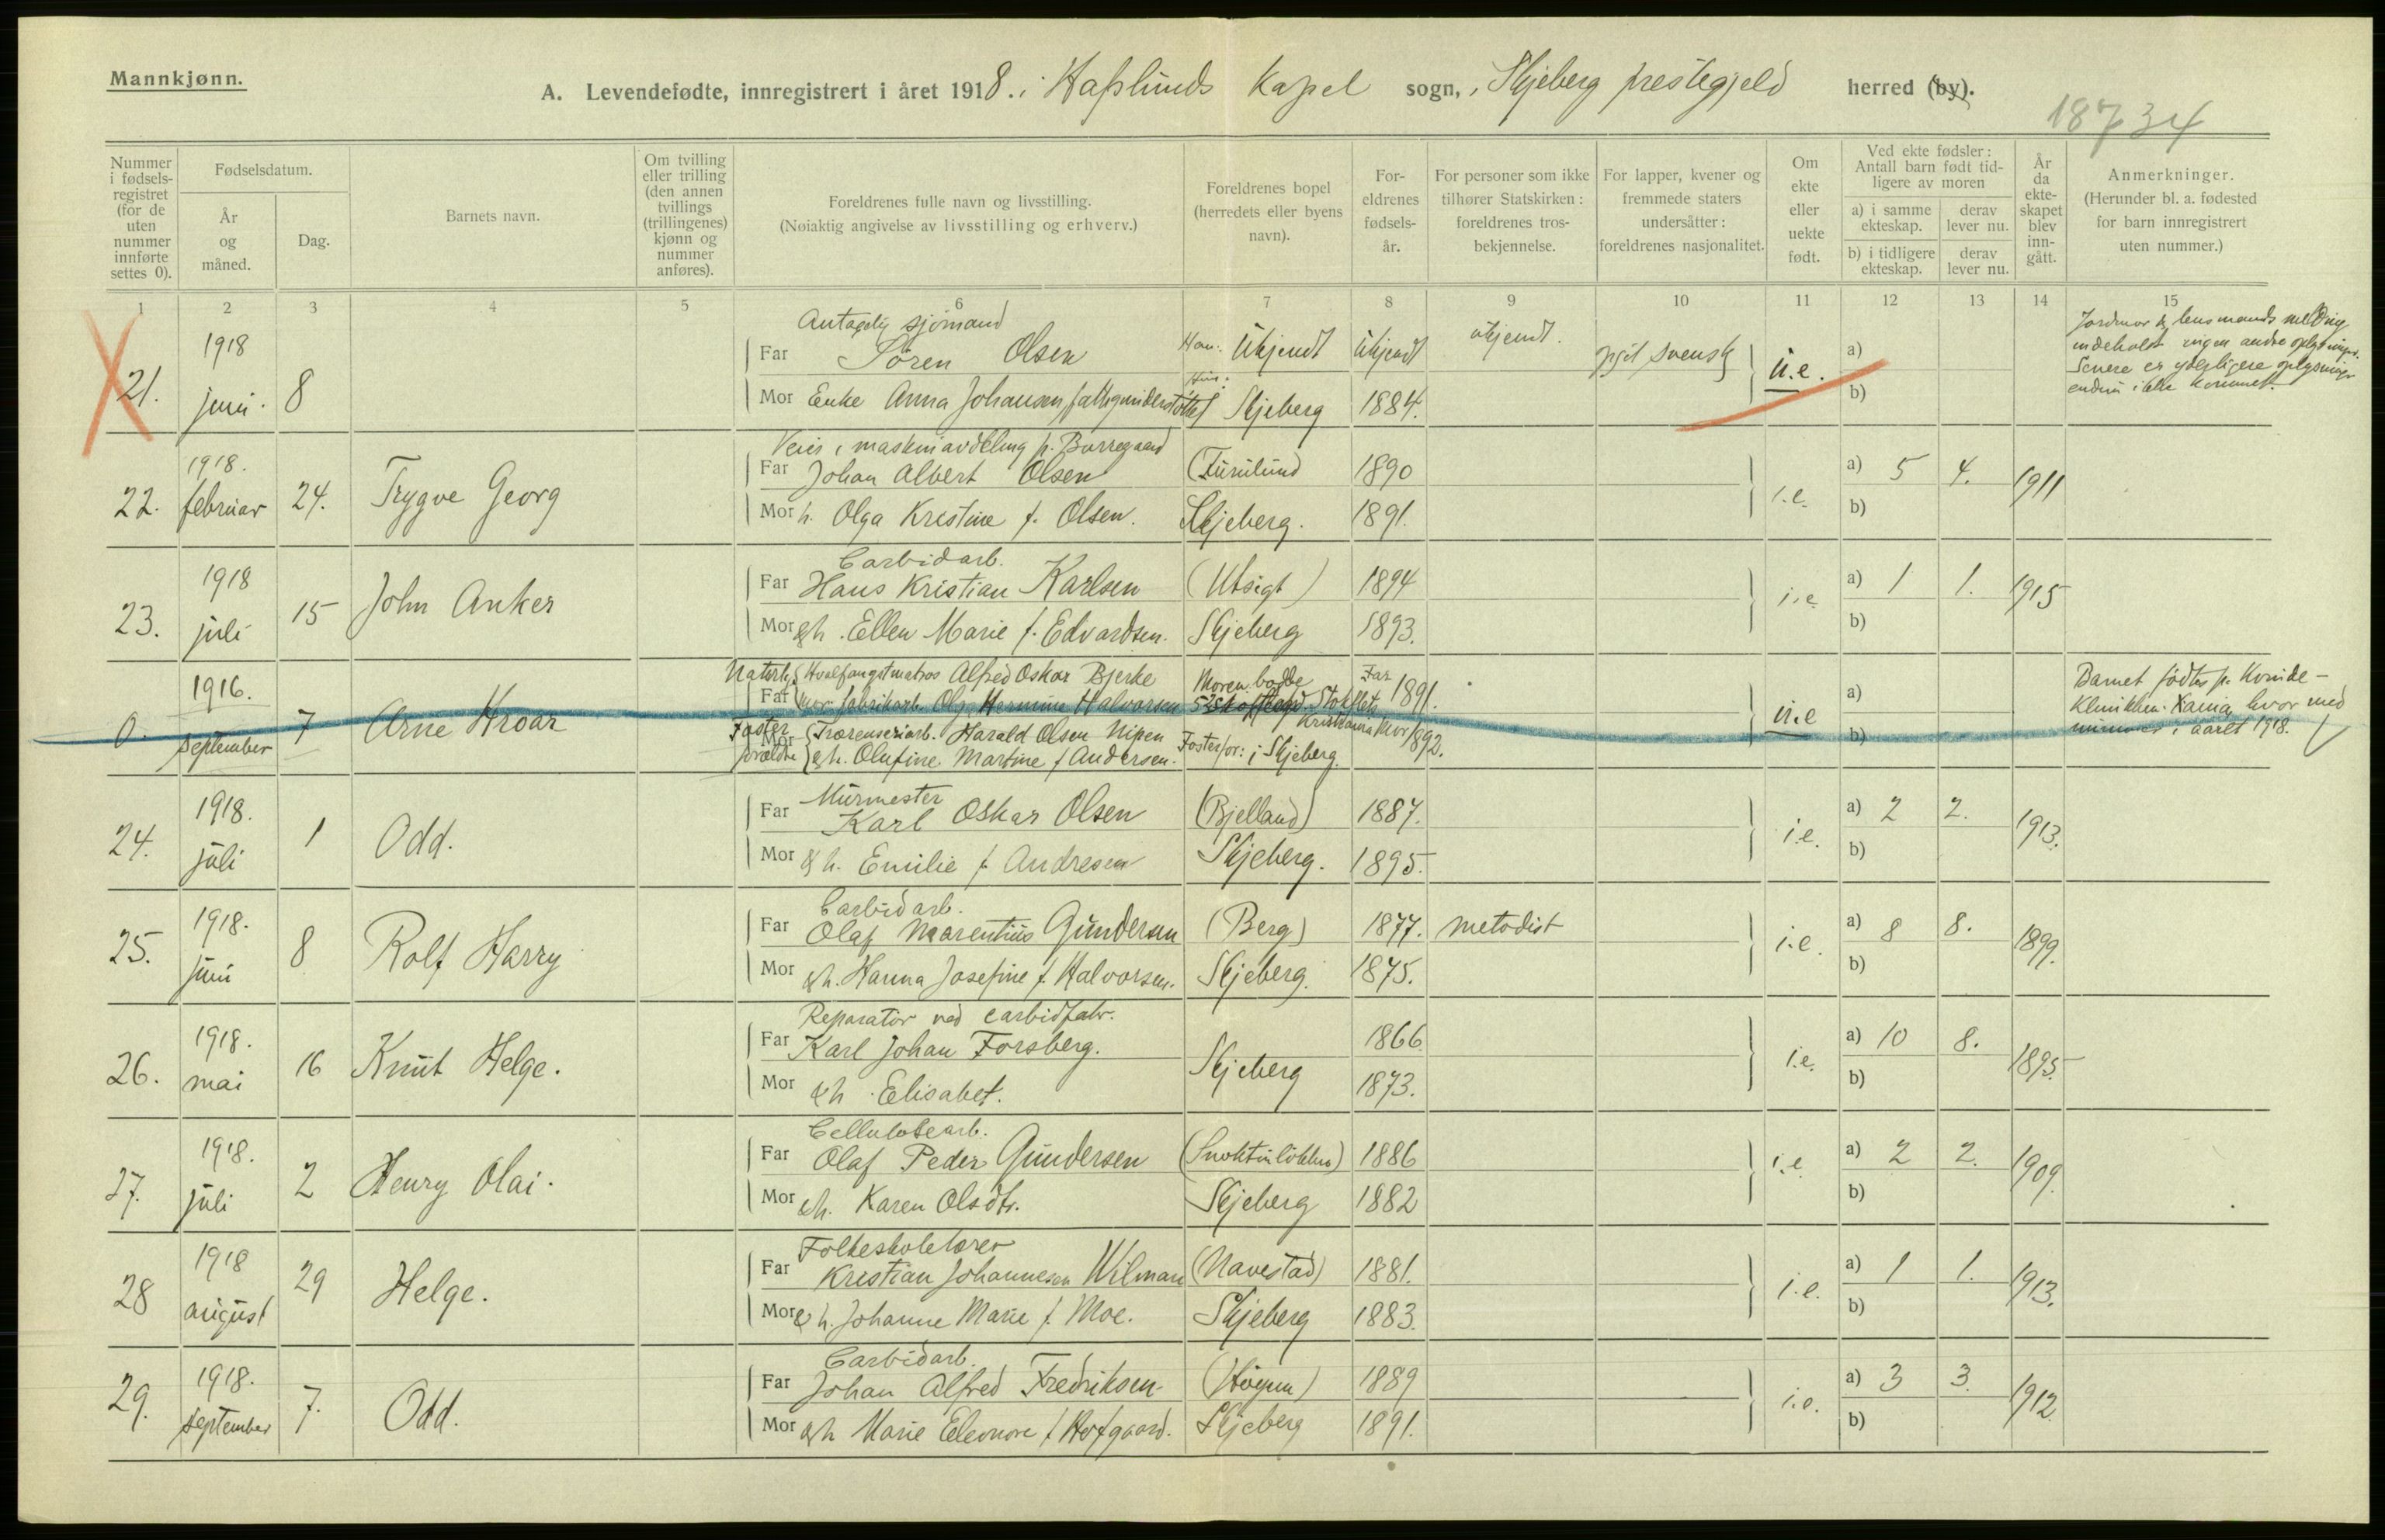 Mannkjønn.
A. Levendefødte, innregistrert i året 1918. i Hafslunds Kapel sogn, i Skjeberg prestegjeld herred (by).
18734
Nummer i fødsels-registret (for de uten nummer innførte settes 0).
Fødselsdatum.
År og måned.
Dag.
Barnets navn.
Om tvilling eller trilling (den annen tvillings (trillingenes) kjønn og nummer anføres).
Foreldrenes fulle navn og livsstilling.
(Nøiaktig angivelse av livsstilling og erhverv.)
Foreldrenes bopel (herredets eller byens navn).
For-eldrenes fødsels-år.
For personer som ikke tilhører Statskirken: foreldrenes tros-bekjennelse.
For lapper, kvener og fremmede staters undersåtter: foreldrenes nasjonalitet.
Om ekte eller uekte født.
Ved ekte fødsler: Antall barn født tid-ligere av moren
a) i samme ekteskap.
derav lever nu.
b) i tidligere ekteskap.
derav lever nu.
År da ekte-skapet blev inn-gått.
Anmerkninger.
(Herunder bl. a. fødested for barn innregistrert uten nummer.)
1 2 3 4 5 6 7 8 9 10 11 12 13 14 15
Antagelig sjömand
21. 1918 juni. 8
Far Sören Olsen Han: Ukjendt Ukjendt ukjendt.
svensk u.e. a)
Mor Enke Anna Johansen Skjeberg 1884. b)
Jordmor & lensmands melding
indeholdt ingen andre oplysninger.
Senere er yderligere oplysninger
endnu ikke kommet.
Veier i maskinavdeling p. Borregaard
22. 1918. februar 24. Trygve Georg
Far Johan Albert Olsen (Furulund) 1890 i.e. a) 5 4. 1911
Mor h. Olga Kristine f. Olsen. Skjeberg. 1891. b)
Carbidarb.
23. 1918 juli 15 John Anker
Far Hans Kristian Karlsen (Utsigt) 1894 i.e. a) 1 1. 1915
Mor &h. Ellen Marie f. Edvardsen. Skjeberg 1893. b)
0. 1916. september 7 Arne Hroar
Naturlig Hvalfangstmatros Alfred Oskar Bjerke Moren: bodde Far 1891.
Far mor fabrikarb. Olga Hermine Halvorsen
Kristiania Mor 1892.
Foster Mor Trærenseriarb. Harald Olsen Nipen
forældre &h. Olufine Martine f Andersen. Fosterfor: i Skjeberg.
u.e a) b)
Barnet födtes p. Kvinde-
klinikken. Kania, hvor med
i aaret 1918.
Murmester
24. 1918. juli 1 Odd.
Far Karl Oskar Olsen (Bjelland) 1887. i.e. a) 2 2. 1913.
Mor &h. Emilie f. Andresen Skjeberg. 1895. b)
Carbidarb.
25. 1918. juni 8 Rolf Harry
Far Olaf Marentius Gundersen (Berg) 1877. metodist i.e. a) 8 8. 1899.
Mor &h. Hanna Josefine f. Halvorsen. Skjeberg. 1875. b)
Reparatör ved carbidfabr.
26. 1918. mai 16 Knut Helge.
Far Karl Johan Forsberg. Skjeberg 1866 i.e. a) 10 8. 1895.
Mor &h Elisabet. 1873. b)
Cellulosearb.
27. 1918. juli 2 Henry Olai.
Far Olaf Peder Gundersen 1886 i.e a) 2 2. 1909.
Mor &h. Karen Olsdtr. Skjeberg 1882 b)
Folkeskolelærer
28 1918 august 29 Helge.
Far Kristian Johannesen Wilman (Navestad) 1881. i.e. a) 1 1. 1913.
Mor &h. Johanne Marie f. Moe. Skjeberg 1883. b)
Carbidarb.
29. 1918. september 7. Odd.
Far Johan Alfred Fredriksen 1889 i.e. a) 3 3. 1912.
Mor &h Marie Eleonore f Hofgaard. Skjeberg 1891. b)